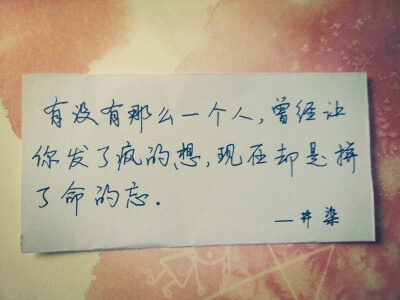 有没有那么一个人，曾经让
你发了疯的想，现在却是拼
了命的忘．
—井染